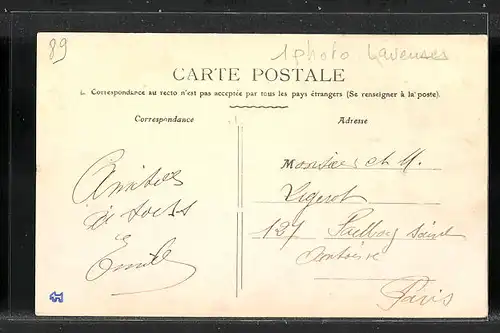 89
1 photo Laveuses
CARTE POSTALE
La Correspondance au recto n'est pas acceptée par tous les pays étrangers (Se renseigner à la poste).
Correspondance
Adresse
Amitiés
de tous
Emile
Monsieur et M.
Ligerot
137 Faelbourg Saint
Antoine
Paris